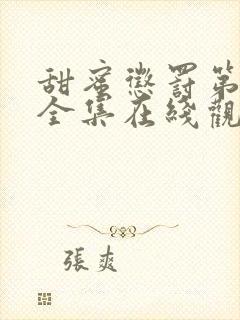 甜蜜懲罰第
全集在綫觀
張爽